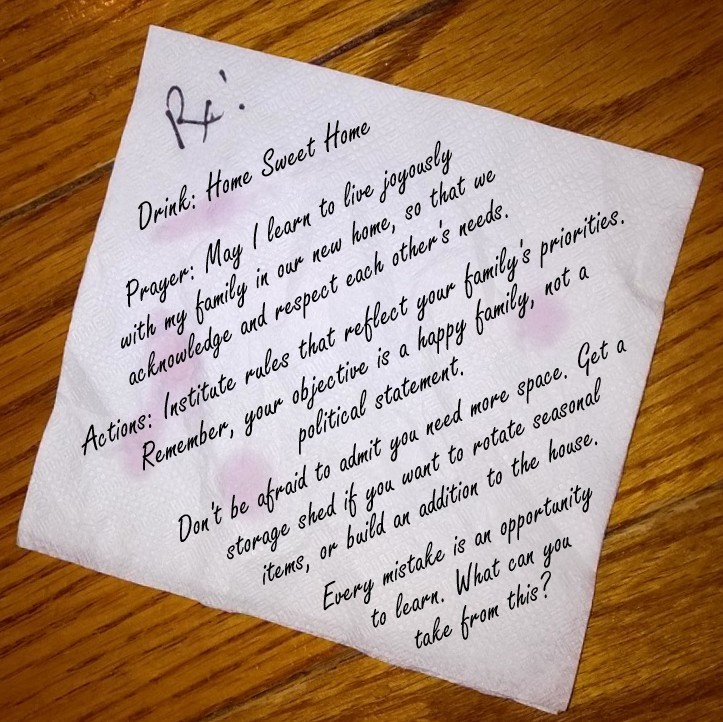 Rx:
Drink: Home Sweet Home
Prayer: May I learn to live joyously
with my family in our new home, so that we
acknowledge and respect each other's needs.
Actions: Institute rules that reflect your family's priorities.
Remember, your objective is a happy family, not a
political statement.
Don't be afraid to admit you need more space. Get a
storage shed if you want to rotate seasonal
items, or build an addition to the house.
Every mistake is an opportunity
to learn. What can you
take from this?